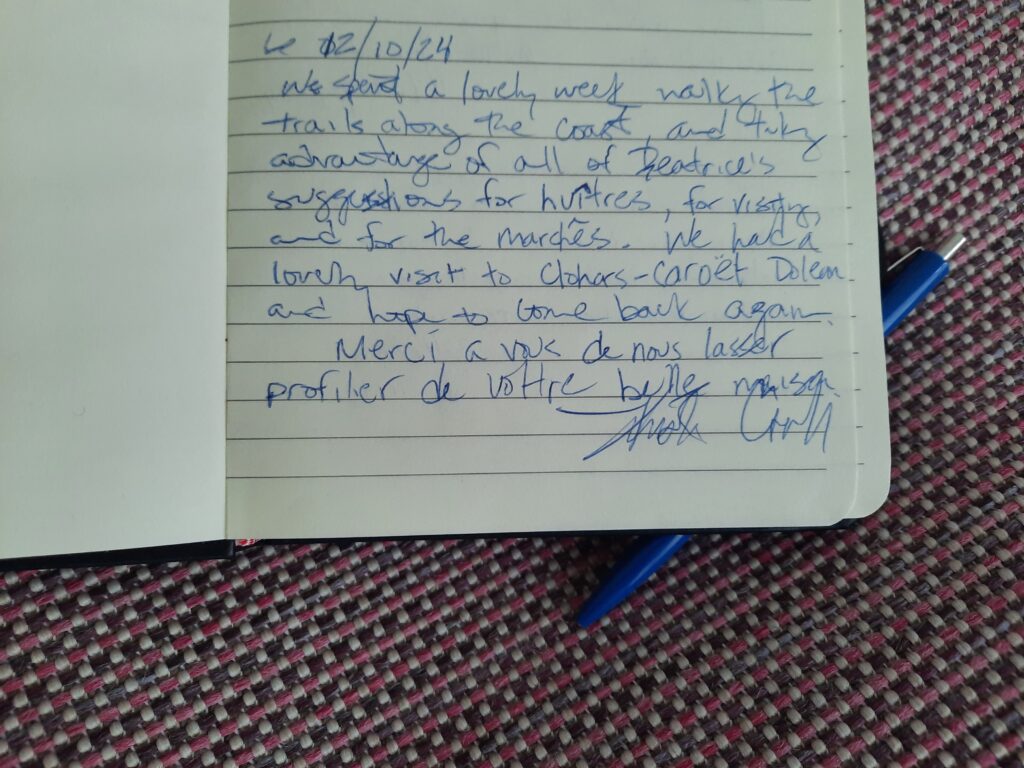 Le 12/10/24
We spent a lovely week walking the
trails along the coast, and taking
advantage of all of Beatrice's
suggestions for huîtres, for visiting,
and for the marchés. We had a
lovely visit to Clohars-Caroët Dolean
and hope to come back again.
Merci a vous de nous lasser
profiler de vottre belle maison.